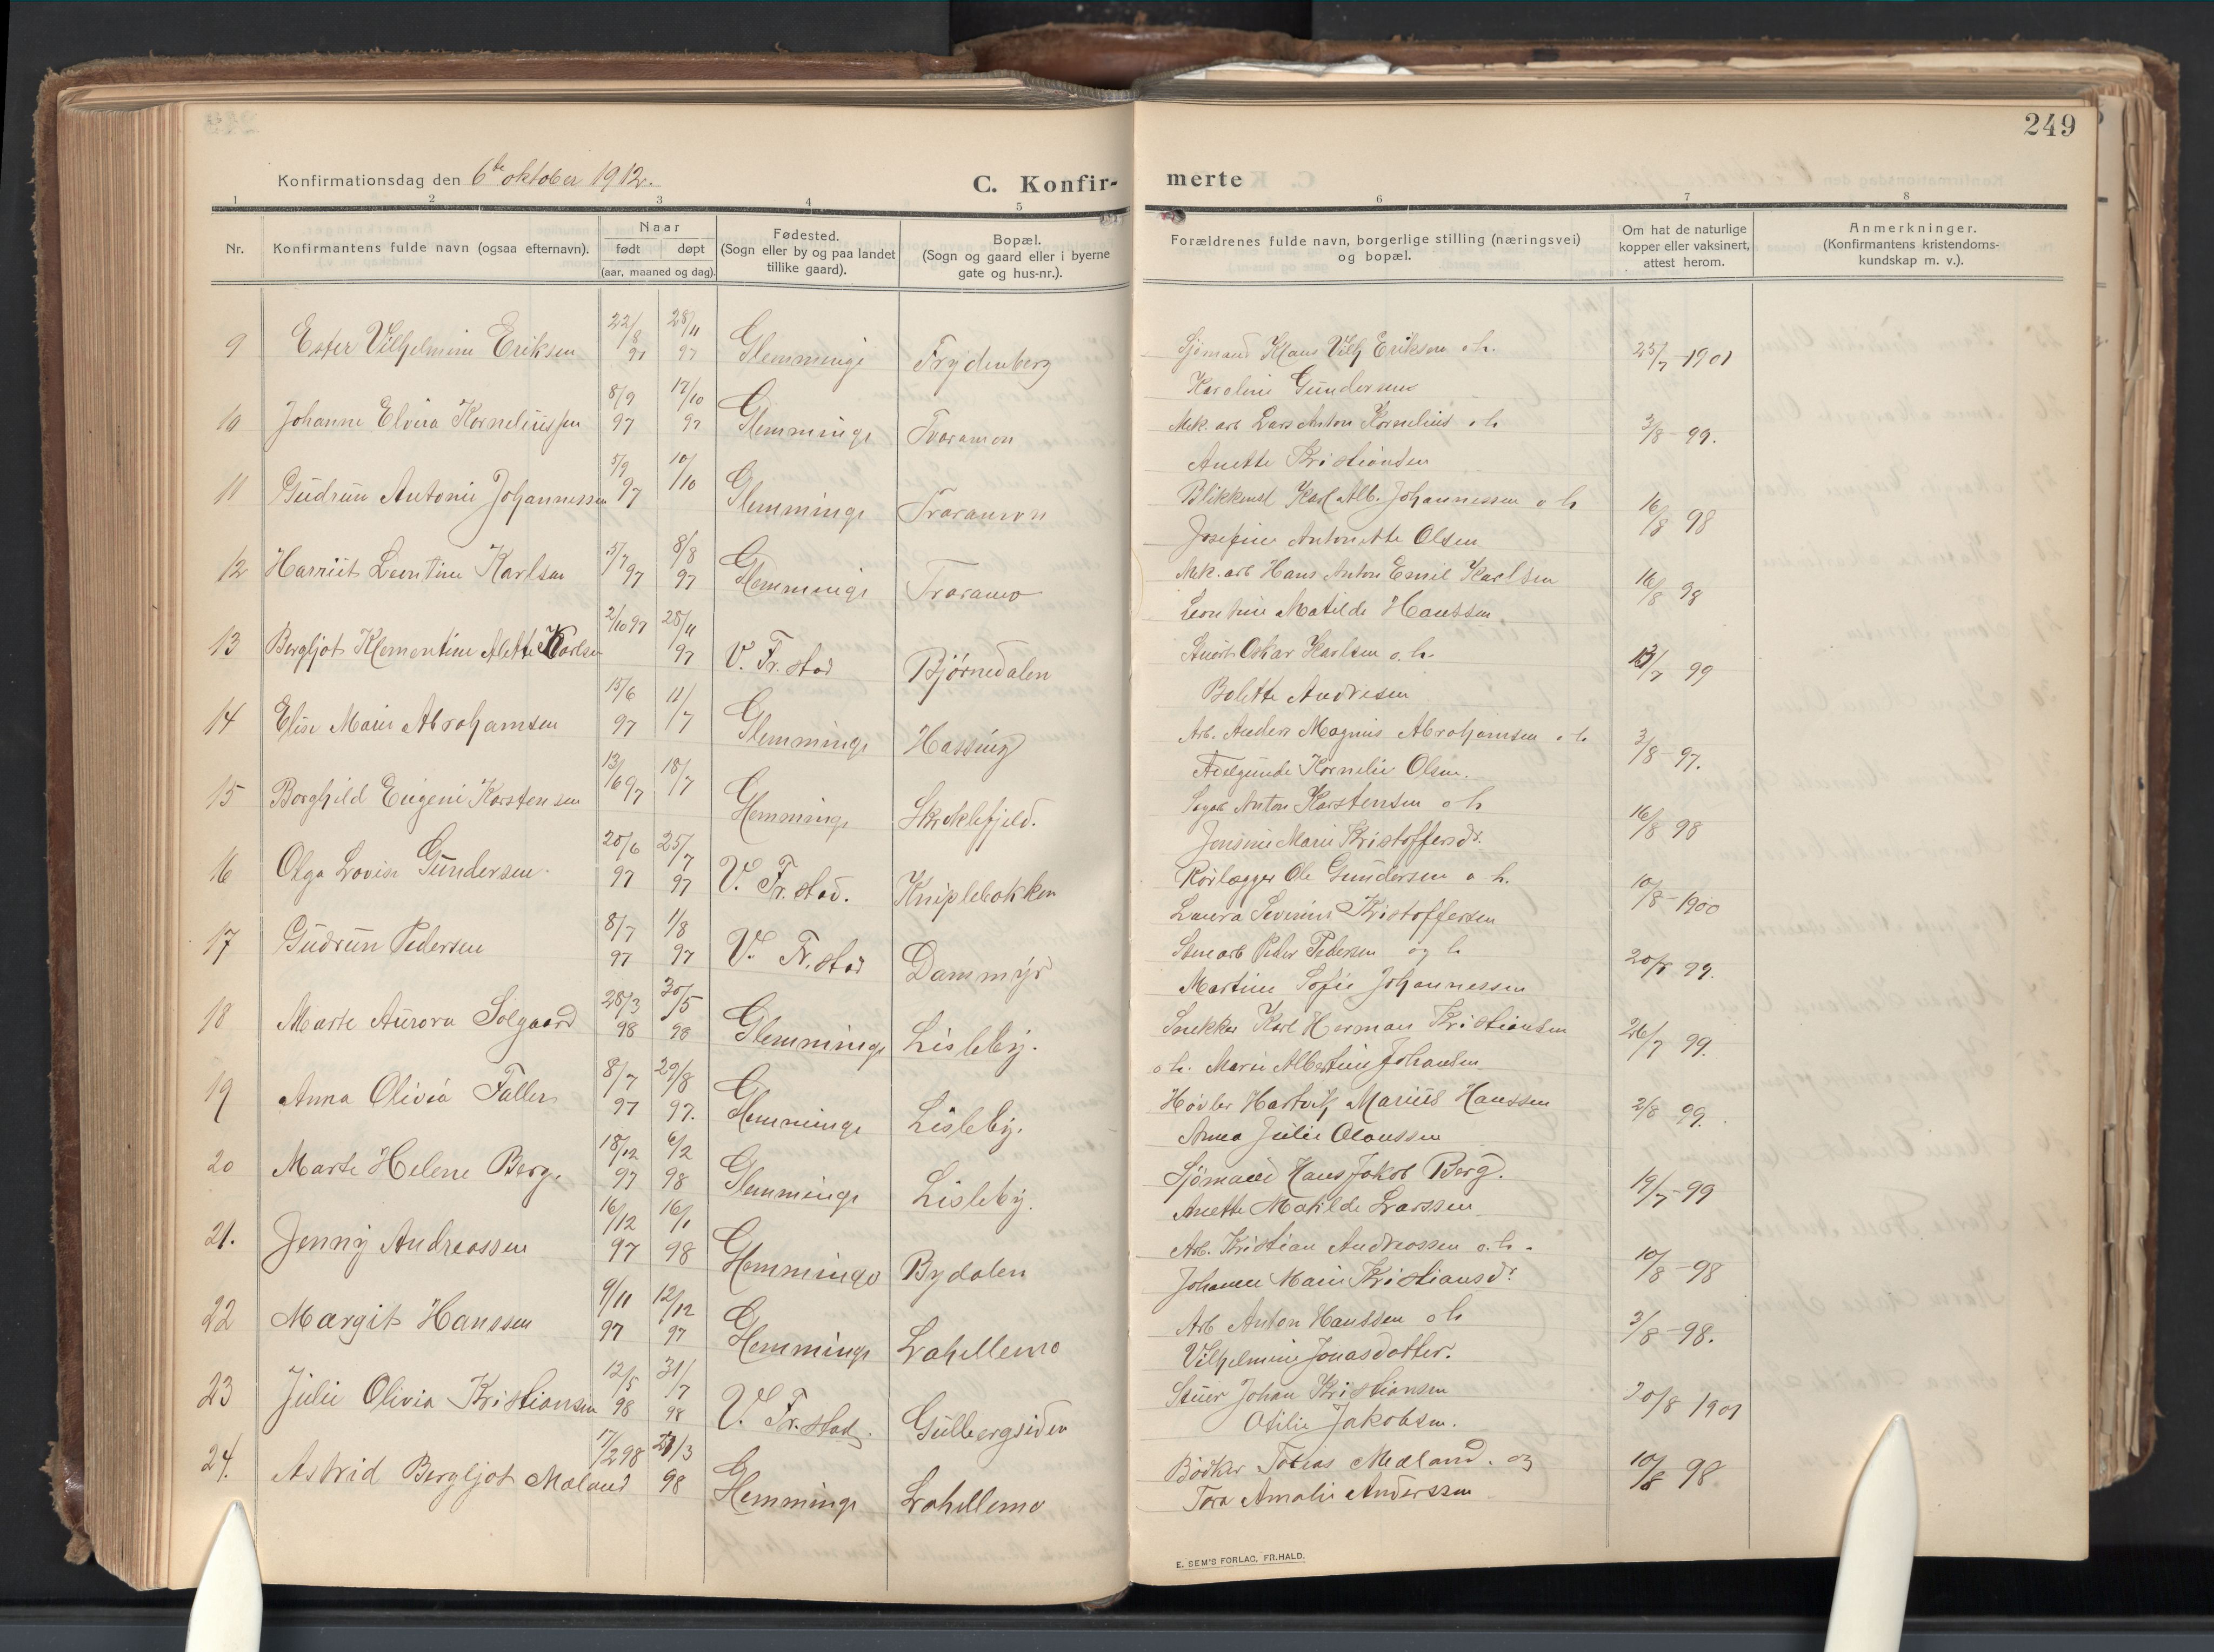 249
Konfirmationsdag den 6te oktober 1912.
C. Konfir-
merte
1 2 3 4 5 6 7 8
Nr.
Konfirmantens fulde navn (ogsaa efternavn).
Naar
født døpt
(aar, maaned og dag).
Fødested.
(Sogn eller by og paa landet
tillike gaard).
Bopæl.
(Sogn og gaard eller i byerne
gate og hus-nr.).
Forældrenes fulde navn, borgerlige stilling (næringsvei)
og bopæl.
Om hat de naturlige
kopper eller vaksinert,
attest herom.
Anmerkninger.
(Konfirmantens kristendoms-
kundskap m. v.).
9 Ester Vilhelmine Eriksen 22/8 97 28/11 97 Glemminge Frydenberg Sjömand Klaus Vilh Eriksen o h. 25/7 1901
Karoline Gundersen
10 Johanne Elvira Korneliussen 8/9 97 17/10 97 Glemminge Traramon Mek. arb Lars Anton Kornelius o h 3/8 99.
Anette Kristiansen
11 Gudrun Antonie Johannessen 5/9 97 10/10 Glemminge Traramon Blikkensl Karl Alb. Johannessen o h 16/8 98
Josefine Antonette Olsen
12 Harriet Leontine Karlsen 5/7 97 8/8 97 Glemminge Traramo Mek. arb Hans Anton Emil Karlsen 16/8 98
Leontine Matilde Hanssen
13 Bergljot Klementine Alette Karlsen 2/10 97 28/11 97 V. Fr. stad Bjørnedalen Oskar Karlsen o. h. 13/7 99
Bolette Andresen
14 Elise Marie Abrahamsen 15/6 97 11/7 Glemminge Hassing Arb. Anders Magnus Abrahamsen o h 3/8 97.
Adelgunde Kornelie Olsen.
15 Borghild Eugeni Karstensen 13/6 97 18/7 Glemminge Skraklefjeld. Sagarb Anton Karstensen o h 16/8 98
Jensine Marie Kristoffersdr.
16 Olga Lovise Gundersen 20/6 97 25/7 97 V. Fr. stad. Kniplebakken Rörlægger Ole Gundersen o h. 10/8 1900
Laura Severine Kristoffersen
17 Gudrun Pedersen 8/7 97 1/8 97 V. Fr. stad Dammyr Stenarb Peder Pedersen og h 20/8 99.
Martine Sofie Johannessen
18 Marte Aurora Solgaard 28/3 98 30/5 98 Glemminge Lisleby. Snekker Karl Herman Kristiansen 26/7 99.
o h. Marie Albertine Johansen
19 Anna Olivia Faller 8/7 97 29/8 97. Glemminge Lisleby. Hövler Hartvik Marius Hanssen 2/8 99.
Anna Julie Olaussen
20 Marte Helene Berg. 18/12 97 6/2 98 Glemminge Lisleby. Sjömand Hans Jakob Berg. 19/7 99
Anette Matilde Larssen
21. Jenny Andreassen 16/12 97 16/1 98 Glemminge Bydalen Arb. Kristian Andreassen o. h. 10/8 98
Johanne Marie Kristiansdr
22 Margit Hanssen 9/11 97 12/12 97 Glemminge Lahellemo Arb Anton Hanssen o h 3/8 98.
Vilhelmine Jonasdatter.
23 Julie Olivia Kristiansen 12/5 98 31/7 98 V. Fr. stad. Gulbergsiden Stuer Johan Kristiansen 20/8 1901
Otilie Jakobsen.
24. Astrid Bergljot Maland 17/2 98 27/3 98 Glemminge Lahellemo Bödker Tobias Mæland. og 10/8 98
Tora Amalie Anderssen
E. SEM'S FORLAG, FR.HALD.